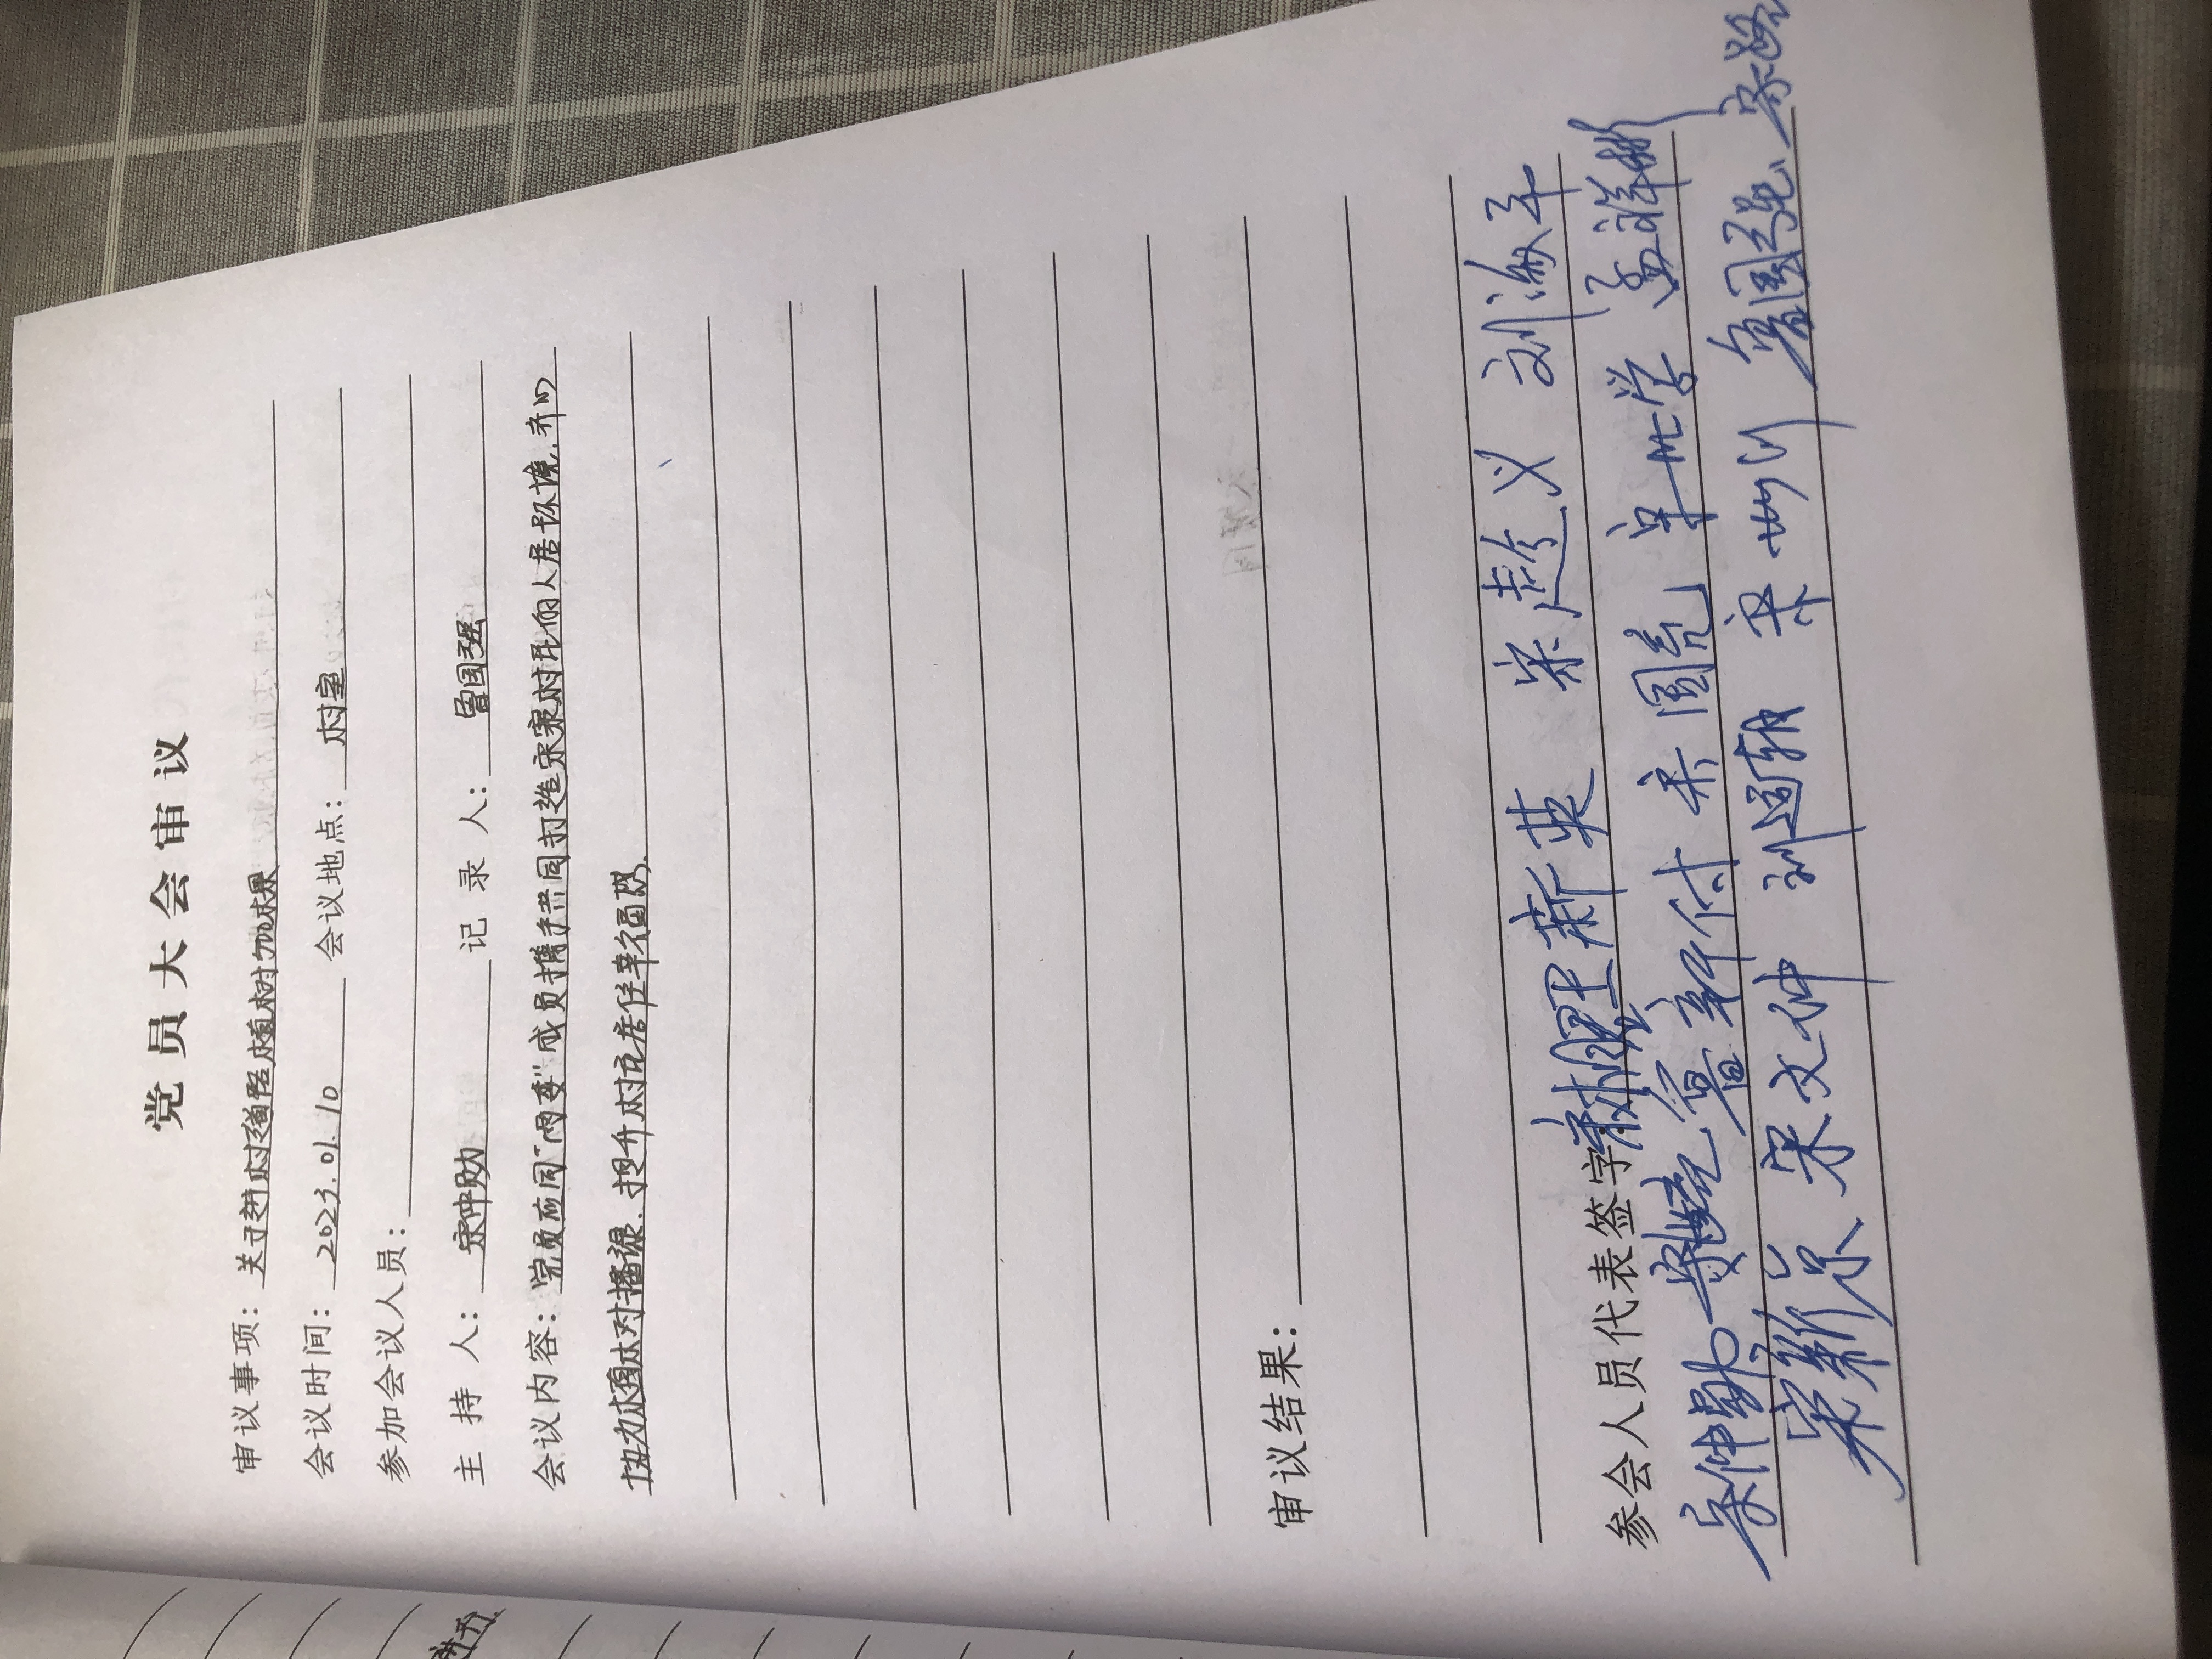 党员大会审议
审议事项：关于进村道路植树500棵
会议时间：2023.01.10 会议地点：村室
参加会议人员：
主持人：宋仲勋 记录人：鲁国强
会议内容：党员应同“两委”成员携手共同打造宋寨村民的人居环境.齐心
协力植树播绿.提升村民居住幸福感.
审议结果：
参会人员代表签字：新英 宋趁义 刘海军
宋仲勋 鲁新付 宋国亮 孟祥彬
宋新京 宋文仲 刘运朝 宋 鲁国强 宋
进行